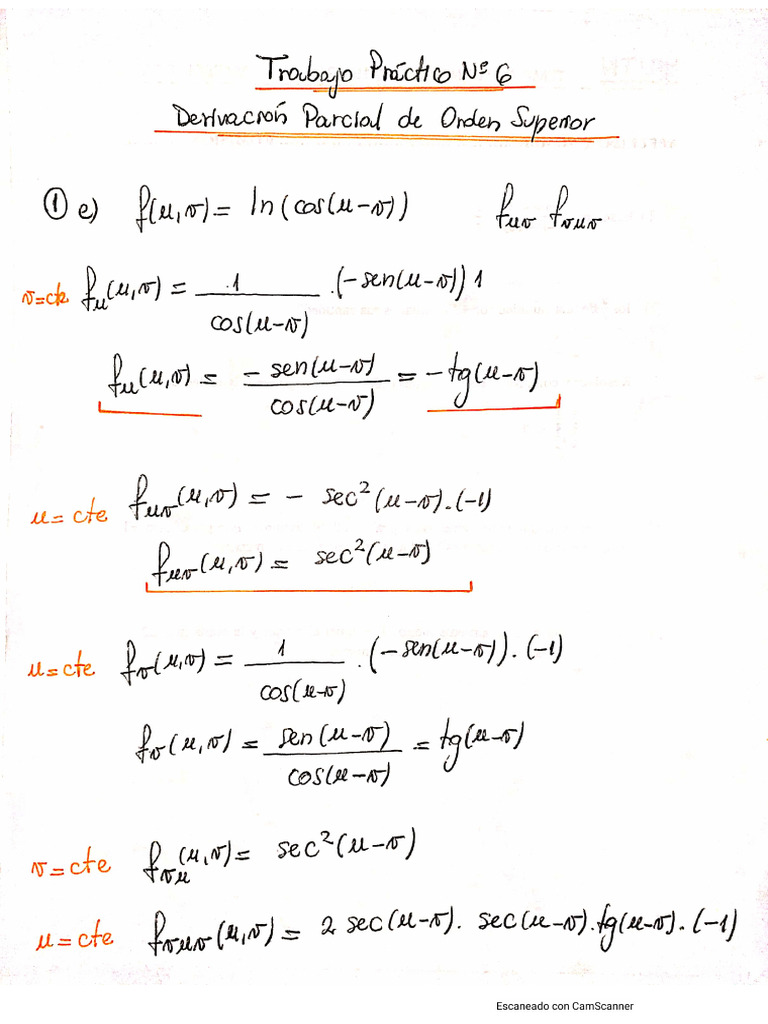 Trabajo Práctico Nº 6
Derivación Parcial de Orden Superior
① e) f(u,v) = ln(cos(u-v)) f_uv f_vuv
v=cte f_u(u,v) = 1/cos(u-v) . (-sen(u-v)) 1
f_u(u,v) = -sen(u-v)/cos(u-v) = -tg(u-v)
u=cte f_uv(u,v) = - sec²(u-v).(-1)
f_uv(u,v) = sec²(u-v)
u=cte f_v(u,v) = 1/cos(u-v) . (-sen(u-v)).(-1)
f_v(u,v) = sen(u-v)/cos(u-v) = tg(u-v)
v=cte f_vu(u,v) = sec²(u-v)
u=cte f_vuv(u,v) = 2 sec(u-v). sec(u-v).tg(u-v).(-1)
Escaneado con CamScanner